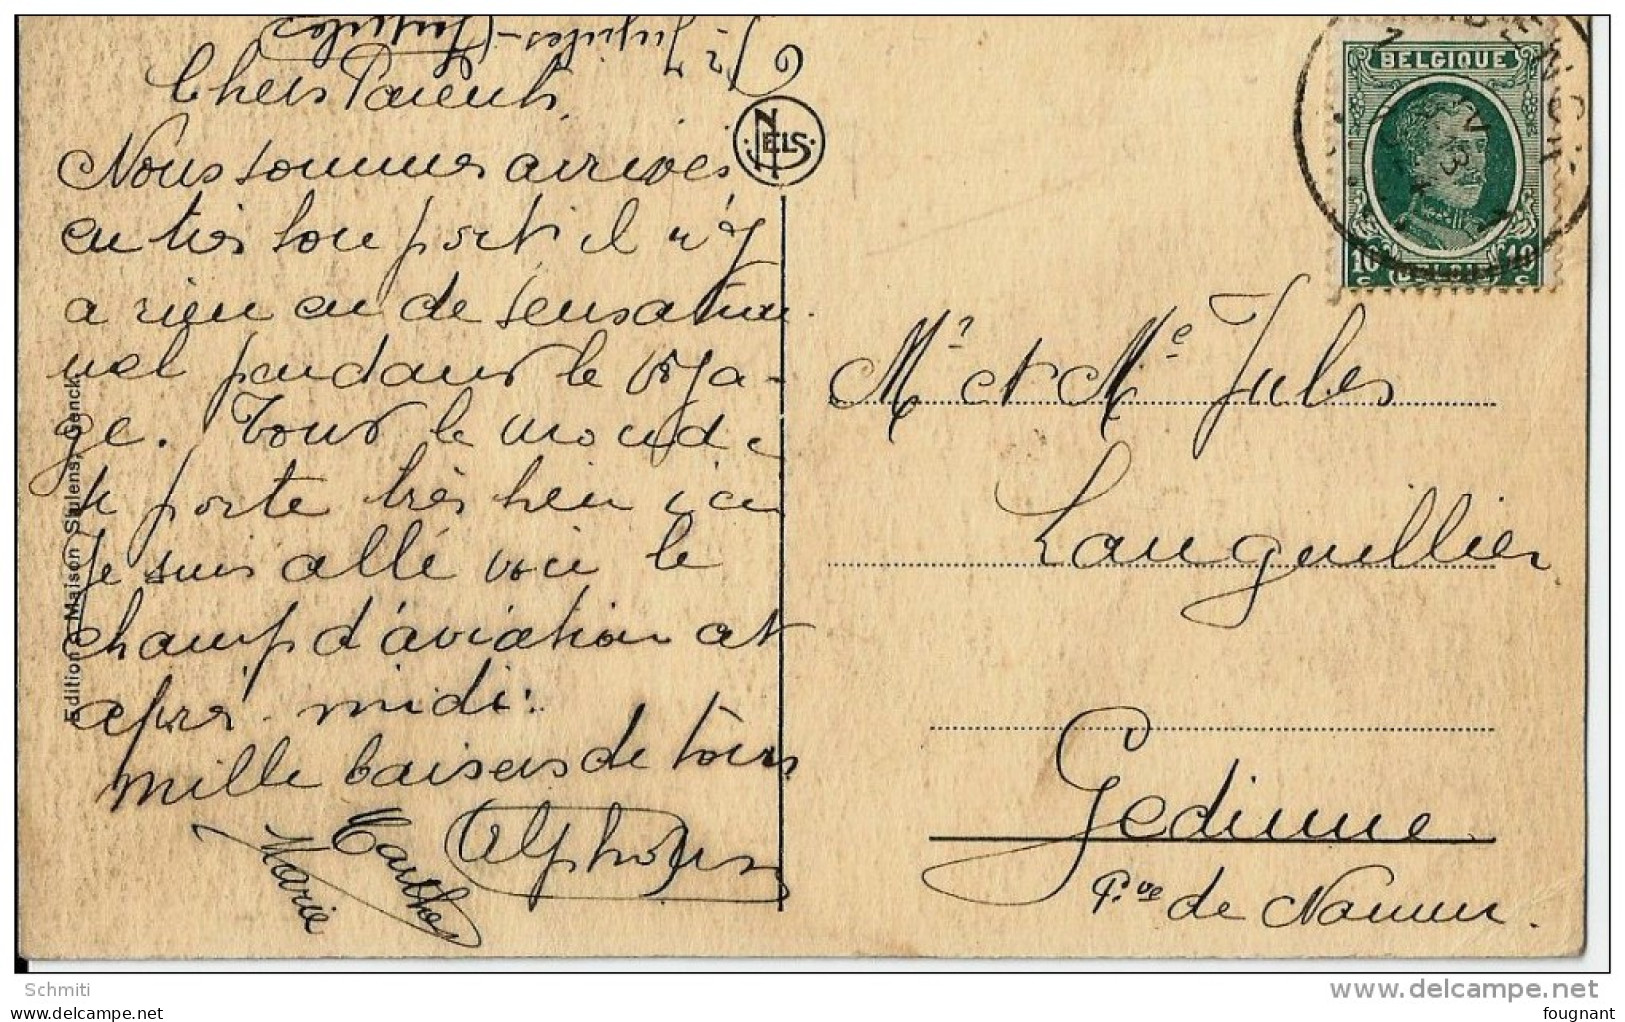 Chers Parents,
Nous sommes arrivés
en très bon port il n'y
a rien eu de sensation
nel pendant le voya-
ge. Tout le monde
se porte très bien ici
Je suis allé voir le
champ d'aviation cet
après-midi.
Mille baisers de tous
Alphonse
Marthe
Marie
NELS
Edition : Maison Stulens, Genck
BELGIQUE
10 c 10 c
Mr et Me Jules
Languillier
Gedinne
P.ve de Namur.
Schmiti
www.delcampe.net
fougnant